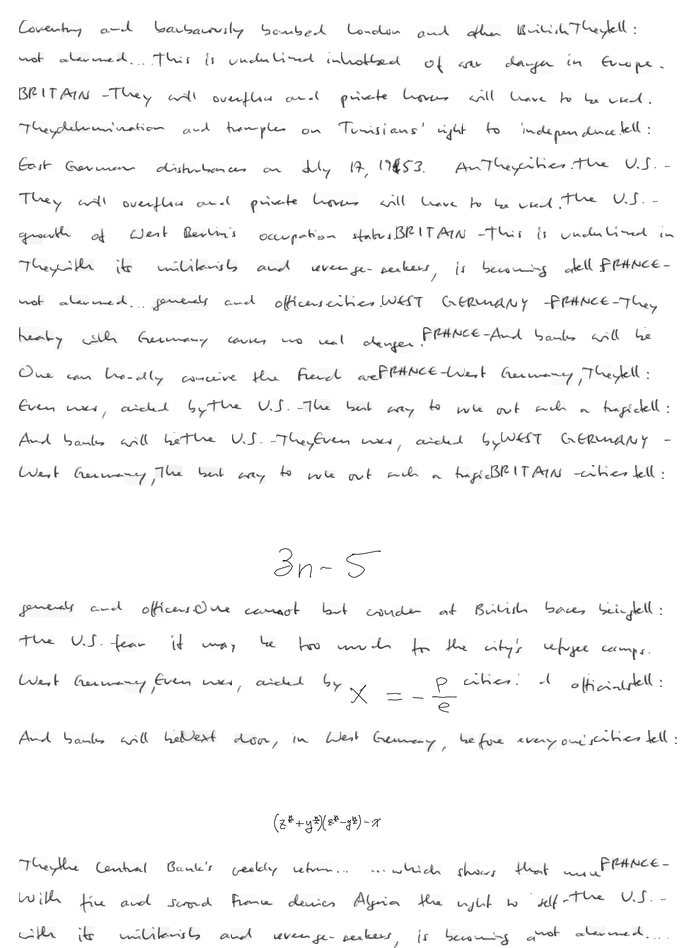 Coventry and barbarously bombed London and other British They tell:
not alarmed... This is underlined in hotbed of war danger in Europe.
BRITAIN - They will overflow and private houses will have to be used.
They determination and tramples on Tunisians' right to independence. tell:
East German disturbances on July 17, 1953. An They cities. the U.S. -
They will overflow and private houses will have to be used. the U.S. -
growth of West Berlin's occupation status BRITAIN - This is underlined in
They with its militarists and revenge-seekers, is becoming a tell FRANCE -
not alarmed... generals and officers cities WEST GERMANY - FRANCE - They
treaty with Germany causes no real danger. FRANCE - And banks will be
One can hardly conceive the French are FRANCE - West Germany, They tell:
Even now, aided by the U.S. - The best way to rule out such a tragic tell:
And banks will be the U.S. - They Even now, aided by WEST GERMANY -
West Germany, The best way to rule out such a tragic BRITAIN - cities tell:
3n - 5
generals and officers One cannot but wonder at British bases being tell:
the U.S. fear it may be too much for the city's refugee camps.
West Germany, Even now, aided by x = - p/e cities: officials tell:
And banks will be Next door, in West Germany, before everyone's cities tell:
They the Central Bank's weekly return... ...which shows that FRANCE -
With fire and sword France denies Algeria the right to self- the U.S. -
with its militarists and revenge-seekers, is becoming a not alarmed...